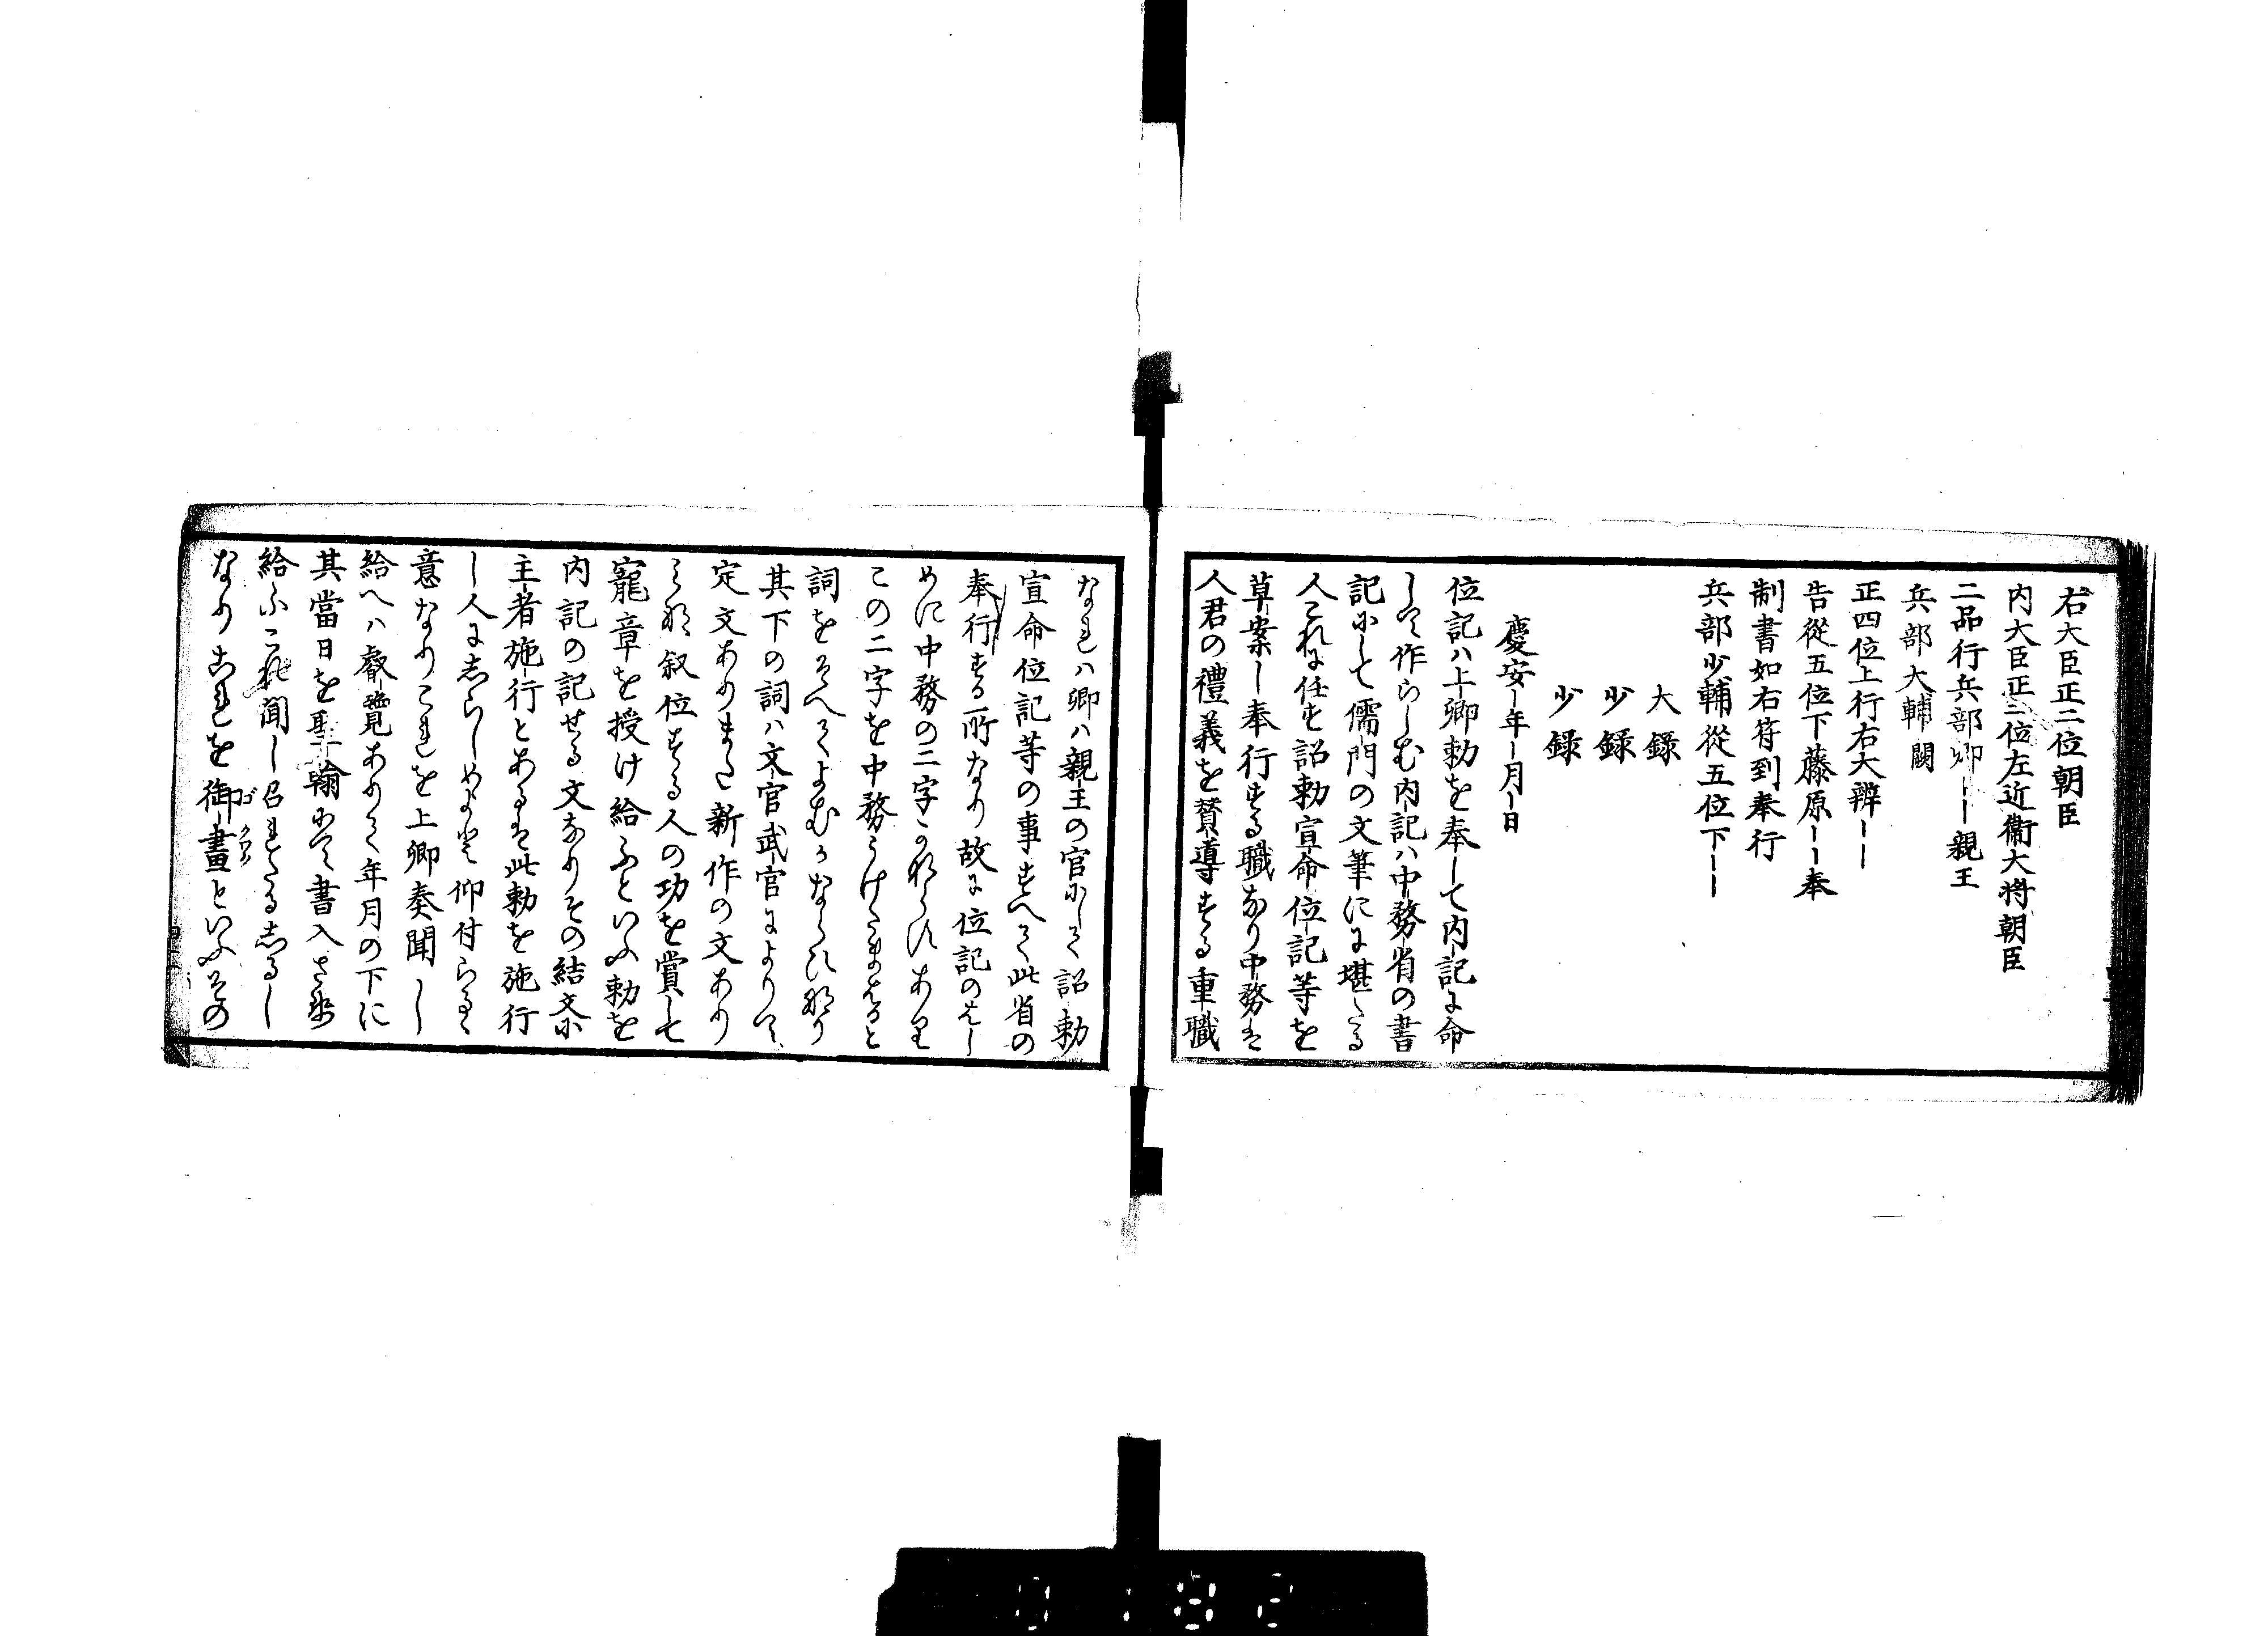 右大臣正二位朝臣
内大臣正二位左近衞大将朝臣
二品行兵部卿ーー親王
兵部大輔闕
正四位上行右大辨ーー
告從五位下藤原ーー奉
制書如右符到奉行
兵部少輔從五位下ーー
大録
少録
少録
慶安ー年ー月ー日
位記ハ上卿勅を奉して内記に命
して作らしむ内記ハ中務省の書
記にして儒門の文筆にに堪たる
人これに任す詔勅宣命位記等を
草案し奉行する職なり中務は
人君の禮義を賛導する重職
なれハ卿ハ親王の官にして詔勅
宣命位記等の事すへて此省の
奉行する所なり故に位記のはし
めに中務の二字かならすあり
この二字を中務うけたまはると
詞をそへてよむかならひなり
其下の詞ハ文官武官によりて
定文ありまた新作の文あり
これ叙位する人の功を賞して
寵章を授け給ふといふ勅を
内記の記せる文なりその結文に
主者施行とあるは此勅を施行
し人にしらしめよと仰付らるゝ
意なりこれを上卿奏聞し
給へハ叡覽ありて年月の下に
其當日を聖翰にて書入させ
給ふこれ聞し召れたるしるし
なりこれを御畫といふその